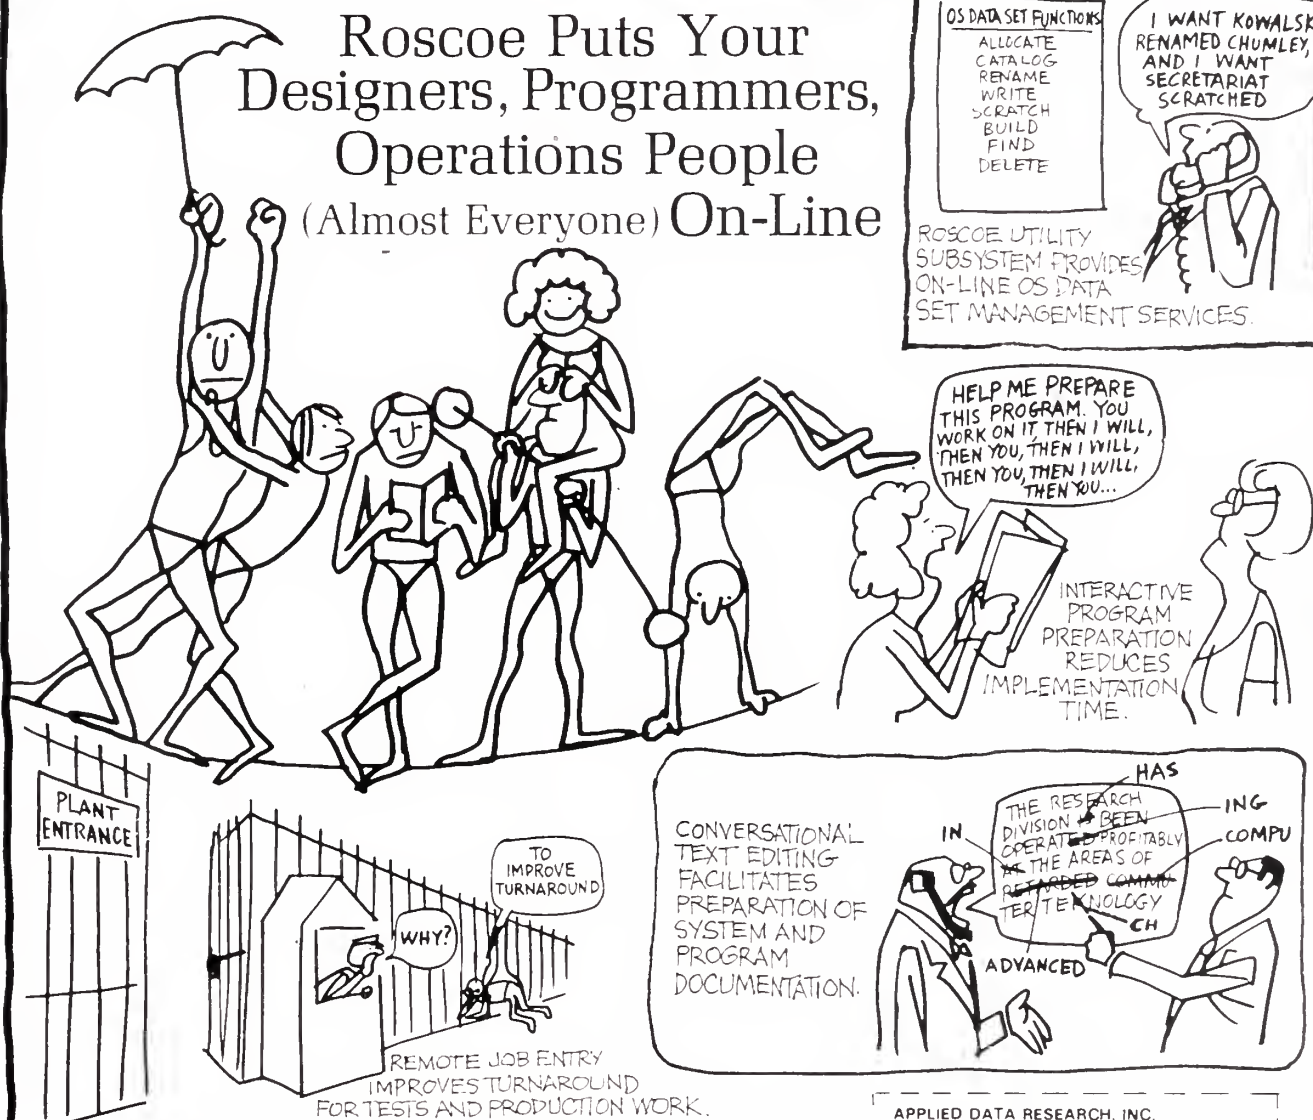 Roscoe Puts Your
Designers, Programmers,
Operations People
(Almost Everyone) On-Line
OS DATA SET FUNCTIONS
ALLOCATE
CATALOG
RENAME
WRITE
SCRATCH
BUILD
FIND
DELETE
I WANT KOWALSK
RENAMED CHUMLEY,
AND I WANT
SECRETARIAT
SCRATCHED
ROSCOE UTILITY
SUBSYSTEM PROVIDES
ON-LINE OS DATA
SET MANAGEMENT SERVICES.
HELP ME PREPARE
THIS PROGRAM. YOU
WORK ON IT, THEN I WILL,
THEN YOU, THEN I WILL,
THEN YOU, THEN I WILL,
THEN YOU...
INTERACTIVE
PROGRAM
PREPARATION
REDUCES
IMPLEMENTATION
TIME.
PLANT
ENTRANCE
WHY?
TO
IMPROVE
TURNAROUND
REMOTE JOB ENTRY
IMPROVES TURNAROUND
FOR TESTS AND PRODUCTION WORK.
CONVERSATIONAL
TEXT EDITING
FACILITATES
PREPARATION OF
SYSTEM AND
PROGRAM
DOCUMENTATION.
HAS
ING
COMPU
IN
THE RESEARCH
DIVISION IS BEEN
OPERATED PROFITABLY
THE AREAS OF
RETARDED COMMU-
TER TEKNOLOGY
CH
ADVANCED
APPLIED DATA RESEARCH, INC.